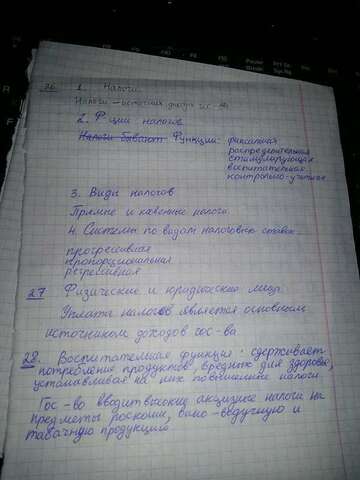 26 1. Налоги.
Налоги – источник дохода гос-ва
2. Ф-ции налогов
Налоги бывают Функции: фискальная
распределительная
стимулирующая
воспитательная
контрольно-учётная
3. Виды налогов
Прямые и косвенные налоги
4. Системы по видам налоговых ставок
прогрессивная
пропорциональная
регрессивная
27 Физические и юридические лица
Уплата налогов является основным
источником доходов гос-ва
28. Воспитательная функция: сдерживает
потребление продуктов, вредных для здоровья,
устанавливая на них повышенные налоги.
Гос-во вводит высокие акцизные налоги на
предметы роскоши, вино-водочную и
табачную продукцию